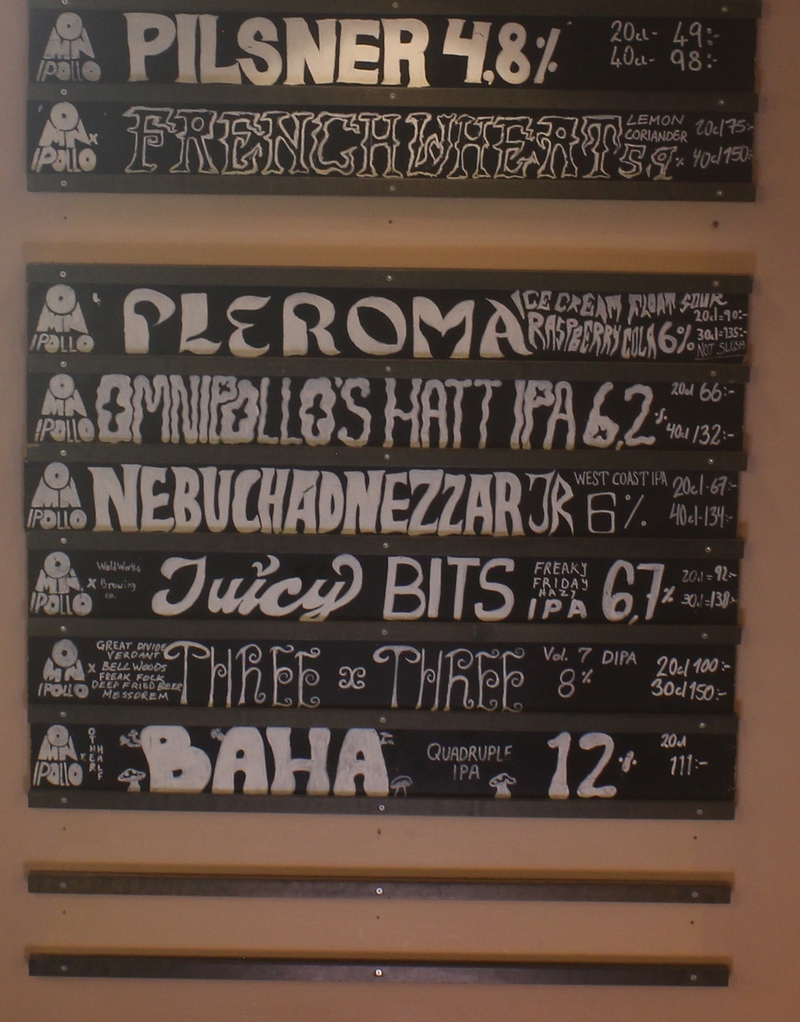 OMNIPOLLO PILSNER 4,8% 20cl- 49:-
40cl- 98:-
OMNIPOLLO x FRENCH WHEAT LEMON CORIANDER 5,9% 20cl/75:-
40cl/150:-
OMNIPOLLO PLEROMA ICE CREAM FLOAT SOUR
RASPBERRY COLA 6% 20cl=90:-
30cl=135:-
NOT SLUSH
OMNIPOLLO OMNIPOLLO'S HATT IPA 6,2% 20cl 66:-
40cl/132:-
OMNIPOLLO NEBUCHADNEZZAR JR WEST COAST IPA 6% 20cl-67:-
40cl-134:-
OMNIPOLLO x WeldWerks Brewing co. Juicy BITS FREAKY FRIDAY HAZY IPA 6,7% 20cl=92:-
30cl=138:-
OMNIPOLLO x GREAT DIVIDE
VERDANT
BELL WOODS
FREAK FOLK
DEEP FRIED BEER
MESSOREM
THREE x THREE Vol. 7 DIPA 8% 20cl 100:-
30cl 150:-
OMNIPOLLO x OTHER HALF BAHA QUADRUPLE IPA 12% 20cl
111:-